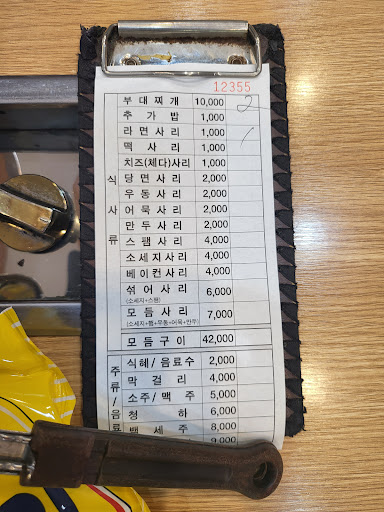 12355
부대찌개 10,000 2
추가밥 1,000
라면사리 1,000 1
떡사리 1,000
치즈(체다)사리 1,000
당면사리 2,000
우동사리 2,000
어묵사리 2,000
만두사리 2,000
스팸사리 4,000
소세지사리 4,000
베이컨사리 4,000
섞어사리 6,000
(소세지+스팸)
모듬사리 7,000
(소세지+햄+우동+어묵+만두)
모듬구이 42,000
식사류
식혜/음료수 2,000
막걸리 4,000
소주/맥주 5,000
청하 6,000
백세주 8,000
9,000
주류/음료